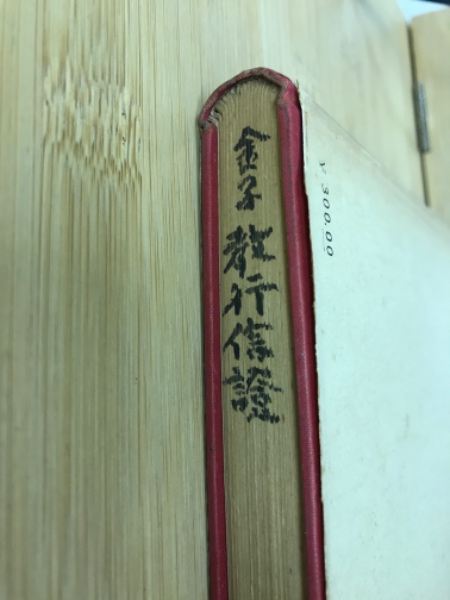 金子 教行信證
¥ 300.00